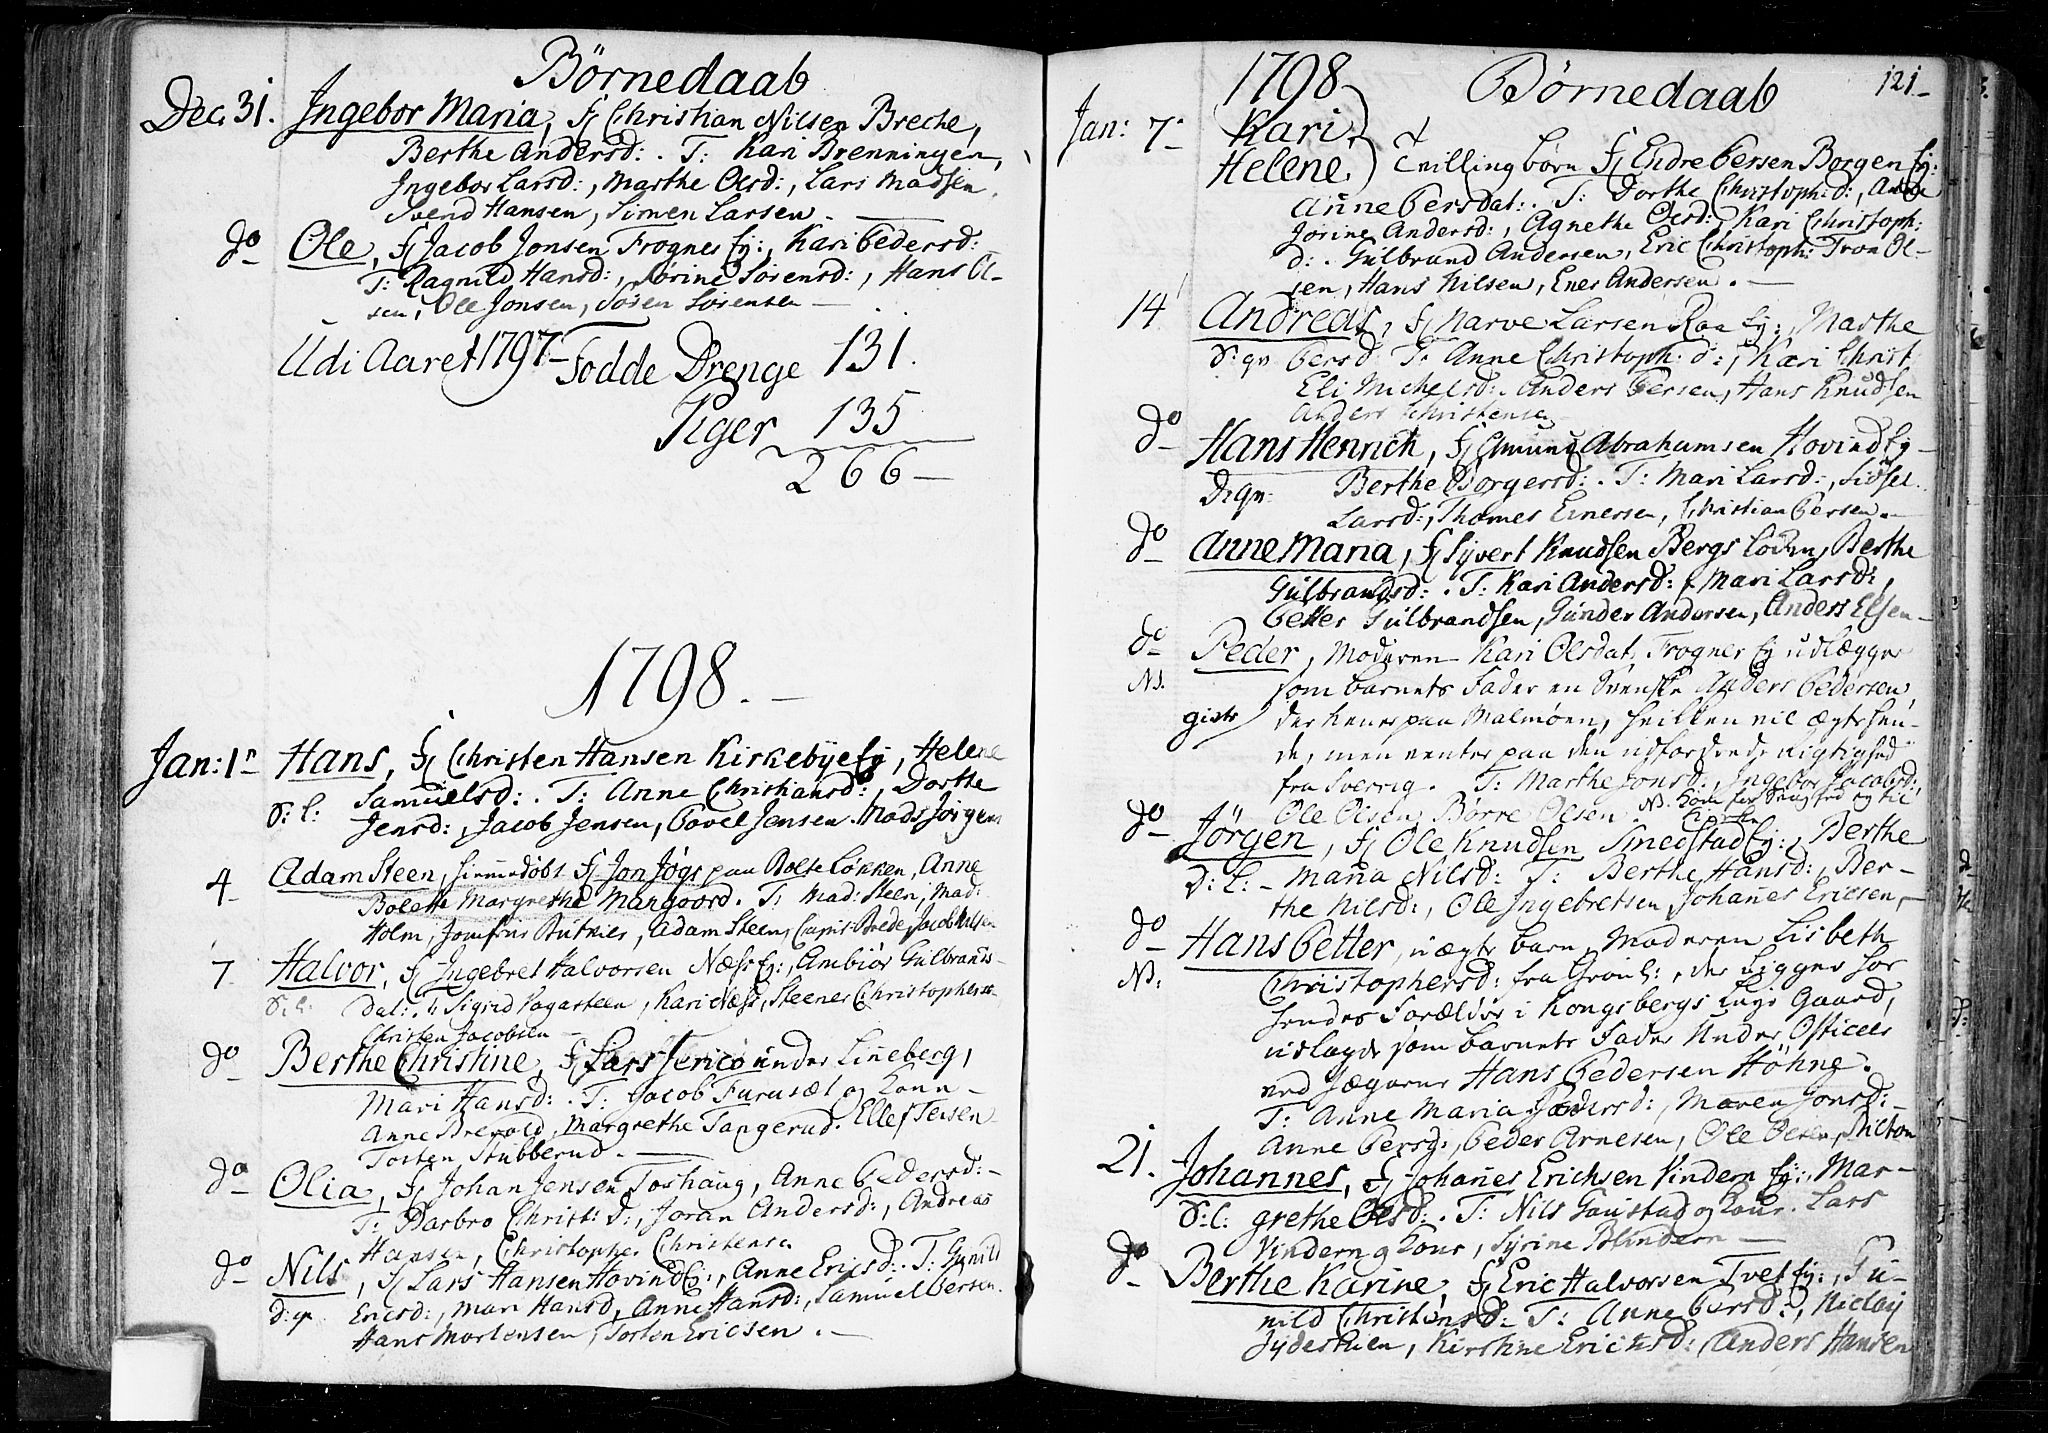 Börnedaab
Dec. 31. Ingebor Maria, fj Christian Nilsen Breche,
Berthe Andersd: . T: Kari Brenningen,
Ingebor Larsd:, Marthe Olsd:, Lars Madsen
Svend Hansen, Simen Larsen.
do Ole, fj Jacob Jonsen Frogner Ey:, Kari Pedersd:
T: Ragnild Hansd:, Sörine Sörensd:, Hans Ol-
sen, Ole Jonsen, Sören Sörensen
Udi Aaret 1797 Fodde Drenge 131.
Piger 135
266
1798.
Jan: 1 Hans, fj Christen Hansen Kirkebye Ey, Helene
S: l: Samuelsd: . T: Anne Christiansd:, Dorthe
Jensd:, Jacob Jensen, Povel Jensen. Mads Jörgens
4 Adam Steen, hiemmedöbt fj Jon Jögs paa Bolte Lökken, Anne
Bolette Margrethe Mangoord. T: Mad: Steen, Mad:
Holm, Jomfru Bütner, Adam Steen, Brede, Jacob Nilsen
7 Halvor, fj Ingebret Halvorsen Næss Ey:, Ambiör Gulbrands-
S: l: dat: . Sigrid Kari Næss, Steener Christophers
Christen Jacobsen
do Berthe Christine, fj Lars Jerico under Lineberg,
Mari Hansd: . T: Jacob Furusæt og Konn
Anne Brevold, Margrethe Tangerud. Ellef Tersen
Torsten Stubberud.
do Olia, fj Johan Jensen Toshaug, Anne Pedersd:
T: Barbro Christ: d:, Joran Andersd:, Andreas
Hansen, Christopher Christensen
do Nils, fj Lars Hansen Hovind Ey:, Anne Ericsd: . T: Gunild
Ericsd:, Mari Hansd, Anne Hansd:, Samuel Persen.
Hans Mortensen, Torsten Ericsen.
1798 Börnedaab 121
Jan: 7 Kari,
Helene, Tvilling börn fj Endre Persen Borgen Ey:
Anne Persdat: . T: Dorthe Christoph: d:, Anne
Jorine Andersd:, Agnethe Olsd:, Kari Christoph:
d: . Gulbrand Andersen, Eric Christoph: Tron Ol-
sen, Hans Nilsen, Ener Andersen.
14 Andreas, fj Narve Larsen Raa Ey:, Marthe
Persd: T: Anne Christoph: d:, Kari Christ
Eli Michelsd: . Anders Persen, Hans Knudsen
Anders Christensen
do Hans Henrich, fj Amund Abrahamsen Hovind Ey
Berthe Borgersd: . T: Mari Larsd:, Sidsel
Larsd:, Thomes Einersen, Christian Persen.
do Anne Maria, fj Syvert Knudsen Bergs Löcken, Berthe
Gülbrandsd: . T: Kari Andersd:, Mari Larsd:,
Petter Gülbrandsen, Gunder Andersen, Anders Elsen
do Peder, Moderen Kari Olsdat, Frogner Ey udlægger
NB. som barnets Fader en Svenske Anders Pedersen
gift der paa Malmöen, hvilken vil ægte hen-
de, men venter paa den udfordrede Rigtighed
fra Sverrig. T: Marthe Jonsd:, Ingebor Jacobsd:,
Ole Olsen, Börre Olsen.
do Jörgen, fj Ole Knudsen Smedstad Ey:, Berthe
D: L: Maria Nilsd: T: Berthe Hansd:, Ber-
the Nilsd:, Ole Ingebretsen, Johanes Ericsen,
do Hans Petter, uægte barn, Moderen Lisbeth
NB. Christophersd: fra Grönl:, der ligger hos
hendes Forældre i Kongsbergs Gaard,
udlagde som barnets Fader Under Officeer
ved Jægerne Hans Pedersen Höhne.
T: Anne Maria, Maren Jonsd:
Anne Persd:, Peder Arnesen, Ole Olsen,
21. Johannes, fj Johanes Erichsen Vindern Ey:, Mar-
S: l: grethe Olsd: . T: Nils Gaustad og Kone. Lars
Vindern og Kone, Syrine Blindern
do Berthe Karine, fj Eric Halvorsen Tvet Ey:, Gu-
nild Christensd: T: Anne Persd:, Niclay
Jydestuen, Kirstine Erichsd: Anders Hansen